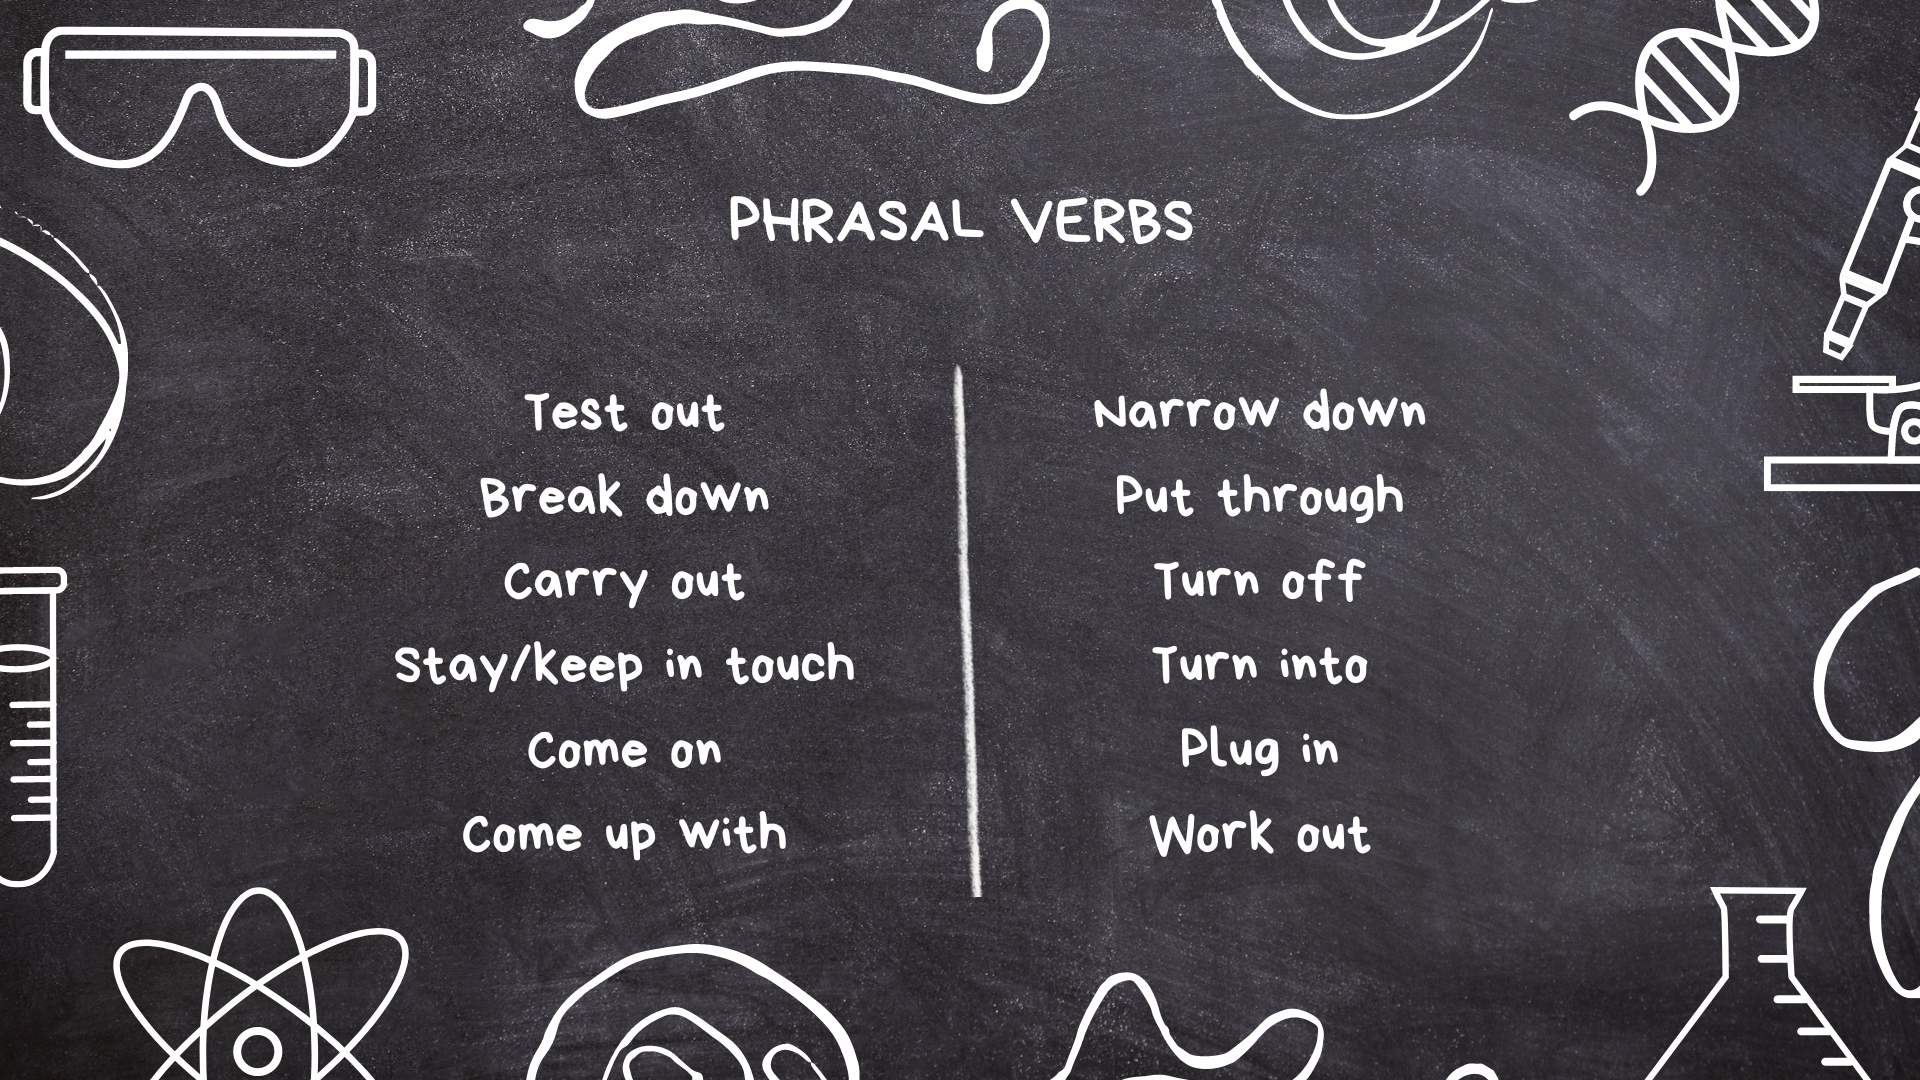 PHRASAL VERBS
Test out
Break down
Carry out
Stay/keep in touch
Come on
Come up with
Narrow down
Put through
Turn off
Turn into
Plug in
Work out